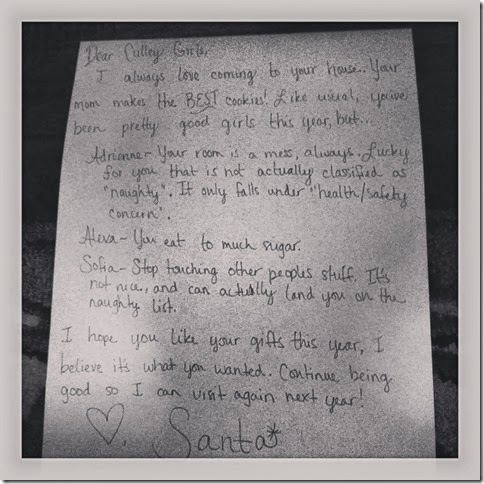 Dear Culley Girls,
I always love coming to your house. Your
mom makes the BEST cookies! Like usual, you've
been pretty good girls this year, but...
Adrianne- Your room is a mess, always. Lucky
for you that is not actually classified as
"naughty". It only falls under "health/safety
concern".
Alexa- You eat to much sugar.
Sofia- Stop touching other peoples stuff. It's
not nice, and can actually land you on the
naughty list.
I hope you like your gifts this year, I
believe it's what you wanted. Continue being
good so I can visit again next year!
♡, Santa*